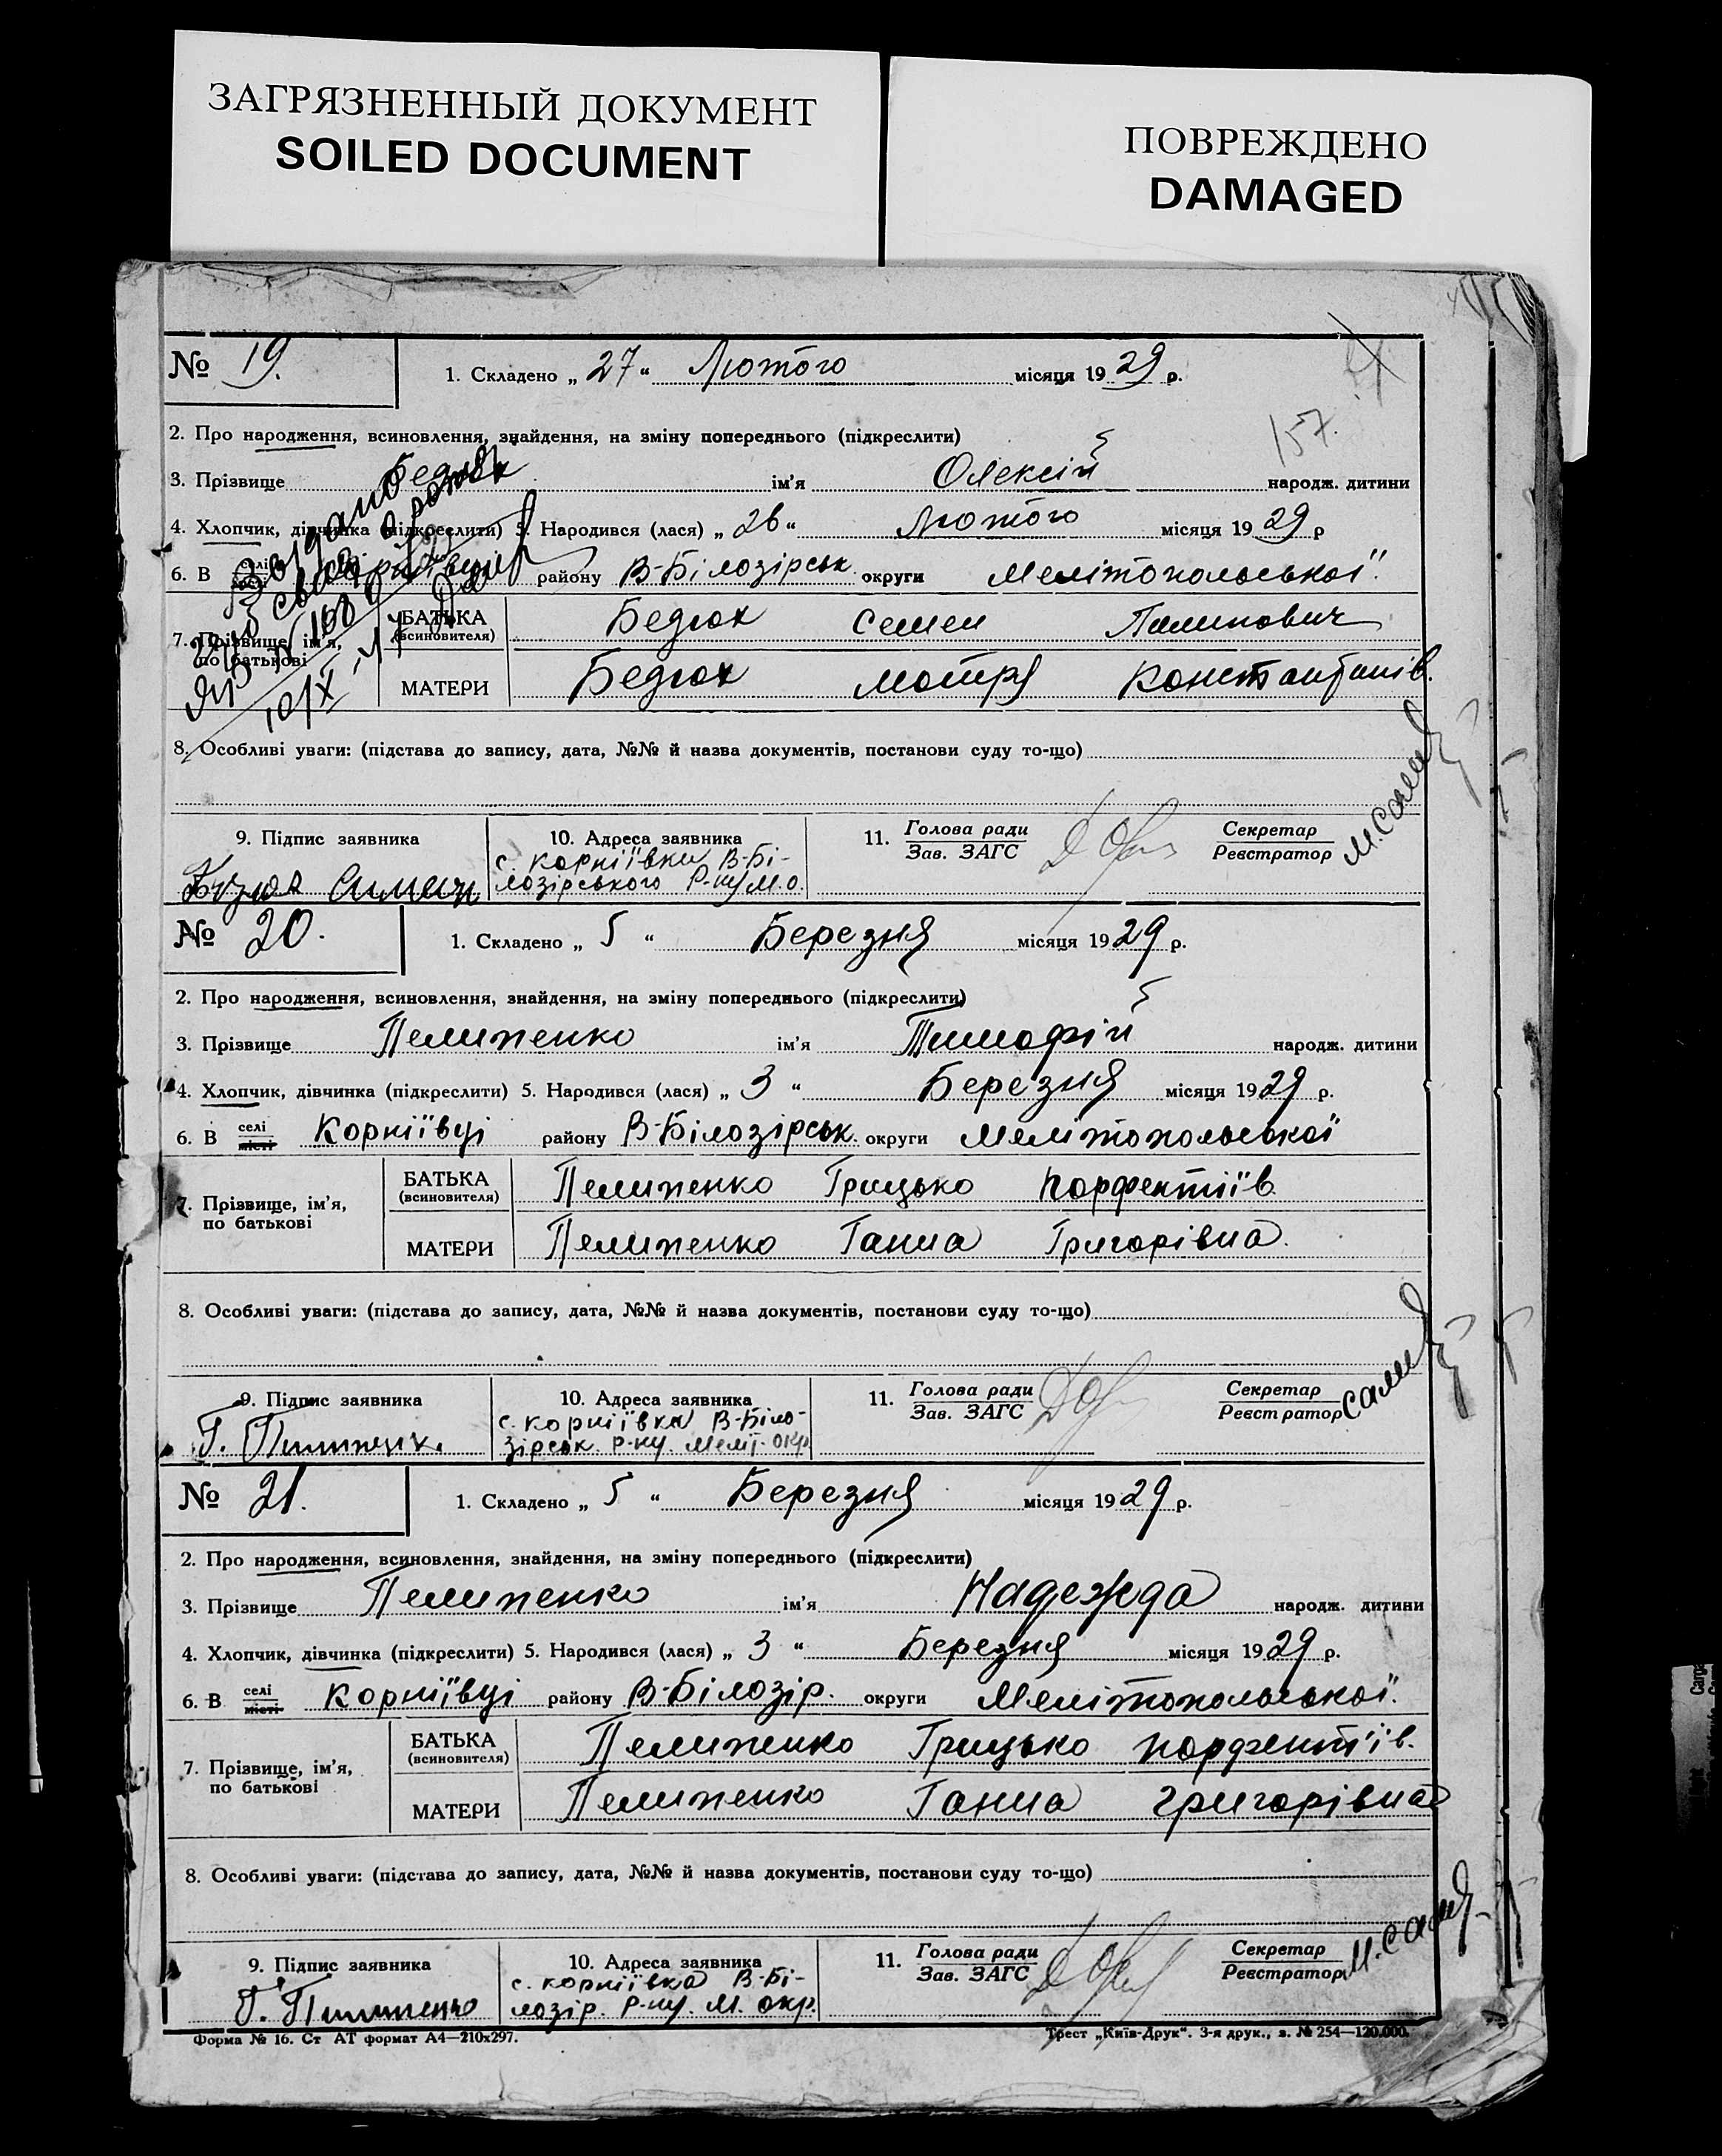 ЗАГРЯЗНЕННЫЙ ДОКУМЕНТ
SOILED DOCUMENT
ПОВРЕЖДЕНО
DAMAGED
№ 19.
1. Складено „ 27 “ Лютого місяця 1929 р.
157.
2. Про народження, всиновлення, знайдення, на зміну попереднього (підкреслити)
3. Прізвище Бедюх ім'я Олексій народж. дитини
4. Хлопчик, дівчинка (підкреслити) 5. Народився (лася) „ 26 “ Лютого місяця 1929 р
6. В селі Корніївці району В-Білозірськ округи Мелітопольської.
7. Прізвище, ім'я, по батькові
БАТЬКА (всиновителя) Бедюх Семен
МАТЕРИ Бедюх Мотря Константинів.
8. Особливі уваги: (підстава до запису, дата, №№ й назва документів, постанови суду то-що)
9. Підпис заявника
10. Адреса заявника
с. Корніївка В-Бі-
лозірського Р-ну М.О.
11. Голова ради
Зав. ЗАГС
Секретар
Реєстратор
№ 20.
1. Складено „ 5 “ Березня місяця 1929 р.
2. Про народження, всиновлення, знайдення, на зміну попереднього (підкреслити)
3. Прізвище Пелипенко ім'я Тимофій народж. дитини
4. Хлопчик, дівчинка (підкреслити) 5. Народився (лася) „ 3 “ Березня місяця 1929 р.
6. В селі місті Корніївці району В-Білозірськ. округи Мелітопольської
7. Прізвище, ім'я, по батькові
БАТЬКА (всиновителя) Пелипенко Грицько Порфентіїв.
МАТЕРИ Пелипенко Ганна Григорівна.
8. Особливі уваги: (підстава до запису, дата, №№ й назва документів, постанови суду то-що)
9. Підпис заявника
10. Адреса заявника
с. Корніївка В-Біло-
зірськ. Р-ну. Меліт. окр.
11. Голова ради
Зав. ЗАГС
Секретар
Реєстратор
№ 21.
1. Складено „ 5 “ Березня місяця 1929 р.
2. Про народження, всиновлення, знайдення, на зміну попереднього (підкреслити)
3. Прізвище Пелипенко ім'я Надежда народж. дитини
4. Хлопчик, дівчинка (підкреслити) 5. Народився (лася) „ 3 “ Березня місяця 1929 р.
6. В селі місті Корніївці району В-Білозір. округи Мелітопольської.
7. Прізвище, ім'я, по батькові
БАТЬКА (всиновителя) Пелипенко Грицько Порфентіїв.
МАТЕРИ Пелипенко Ганна Григорівна
8. Особливі уваги: (підстава до запису, дата, №№ й назва документів, постанови суду то-що)
9. Підпис заявника
10. Адреса заявника
с. Корніївка В-Бі-
лозір. Р-ну. М. окр.
11. Голова ради
Зав. ЗАГС
Секретар
Реєстратор
Форма № 16. Ст АТ формат А4—210х297.
Трест „Київ-Друк“. 3-я друк., з. № 254—120.000.